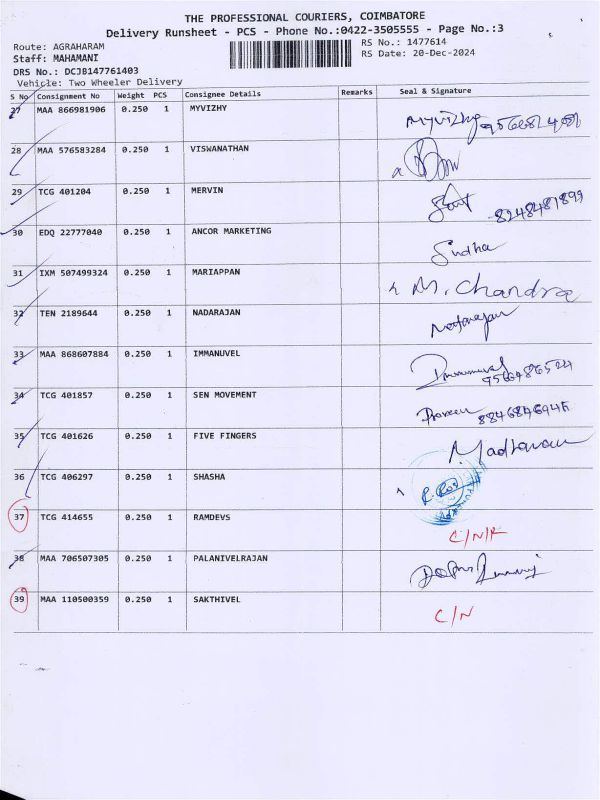 THE PROFESSIONAL COURIERS, COIMBATORE
Delivery Runsheet - PCS - Phone No.:0422-3505555 - Page No.:3
Route: AGRAHARAM RS No.: 1477614
Staff: MAHAMANI RS Date: 20-Dec-2024
DRS No.: DCJB147761403
Vehicle: Two Wheeler Delivery
S No Consignment No Weight PCS Consignee Details Remarks Seal & Signature
27 MAA 866981906 0.250 1 MYVIZHY Myvizhy
28 MAA 576583284 0.250 1 VISWANATHAN
29 TCG 401204 0.250 1 MERVIN 8248481899
30 EDQ 22777040 0.250 1 ANCOR MARKETING Sudha
31 IXM 507499324 0.250 1 MARIAPPAN M. Chandra
32 TEN 2189644 0.250 1 NADARAJAN Natarajan
33 MAA 868607884 0.250 1 IMMANUVEL Immanuvel
34 TCG 401857 0.250 1 SEN MOVEMENT Praveen
35 TCG 401626 0.250 1 FIVE FINGERS Madhavan
36 TCG 406297 0.250 1 SHASHA
37 TCG 414655 0.250 1 RAMDEVS C/N/R
38 MAA 706507305 0.250 1 PALANIVELRAJAN
39 MAA 110500359 0.250 1 SAKTHIVEL C/N